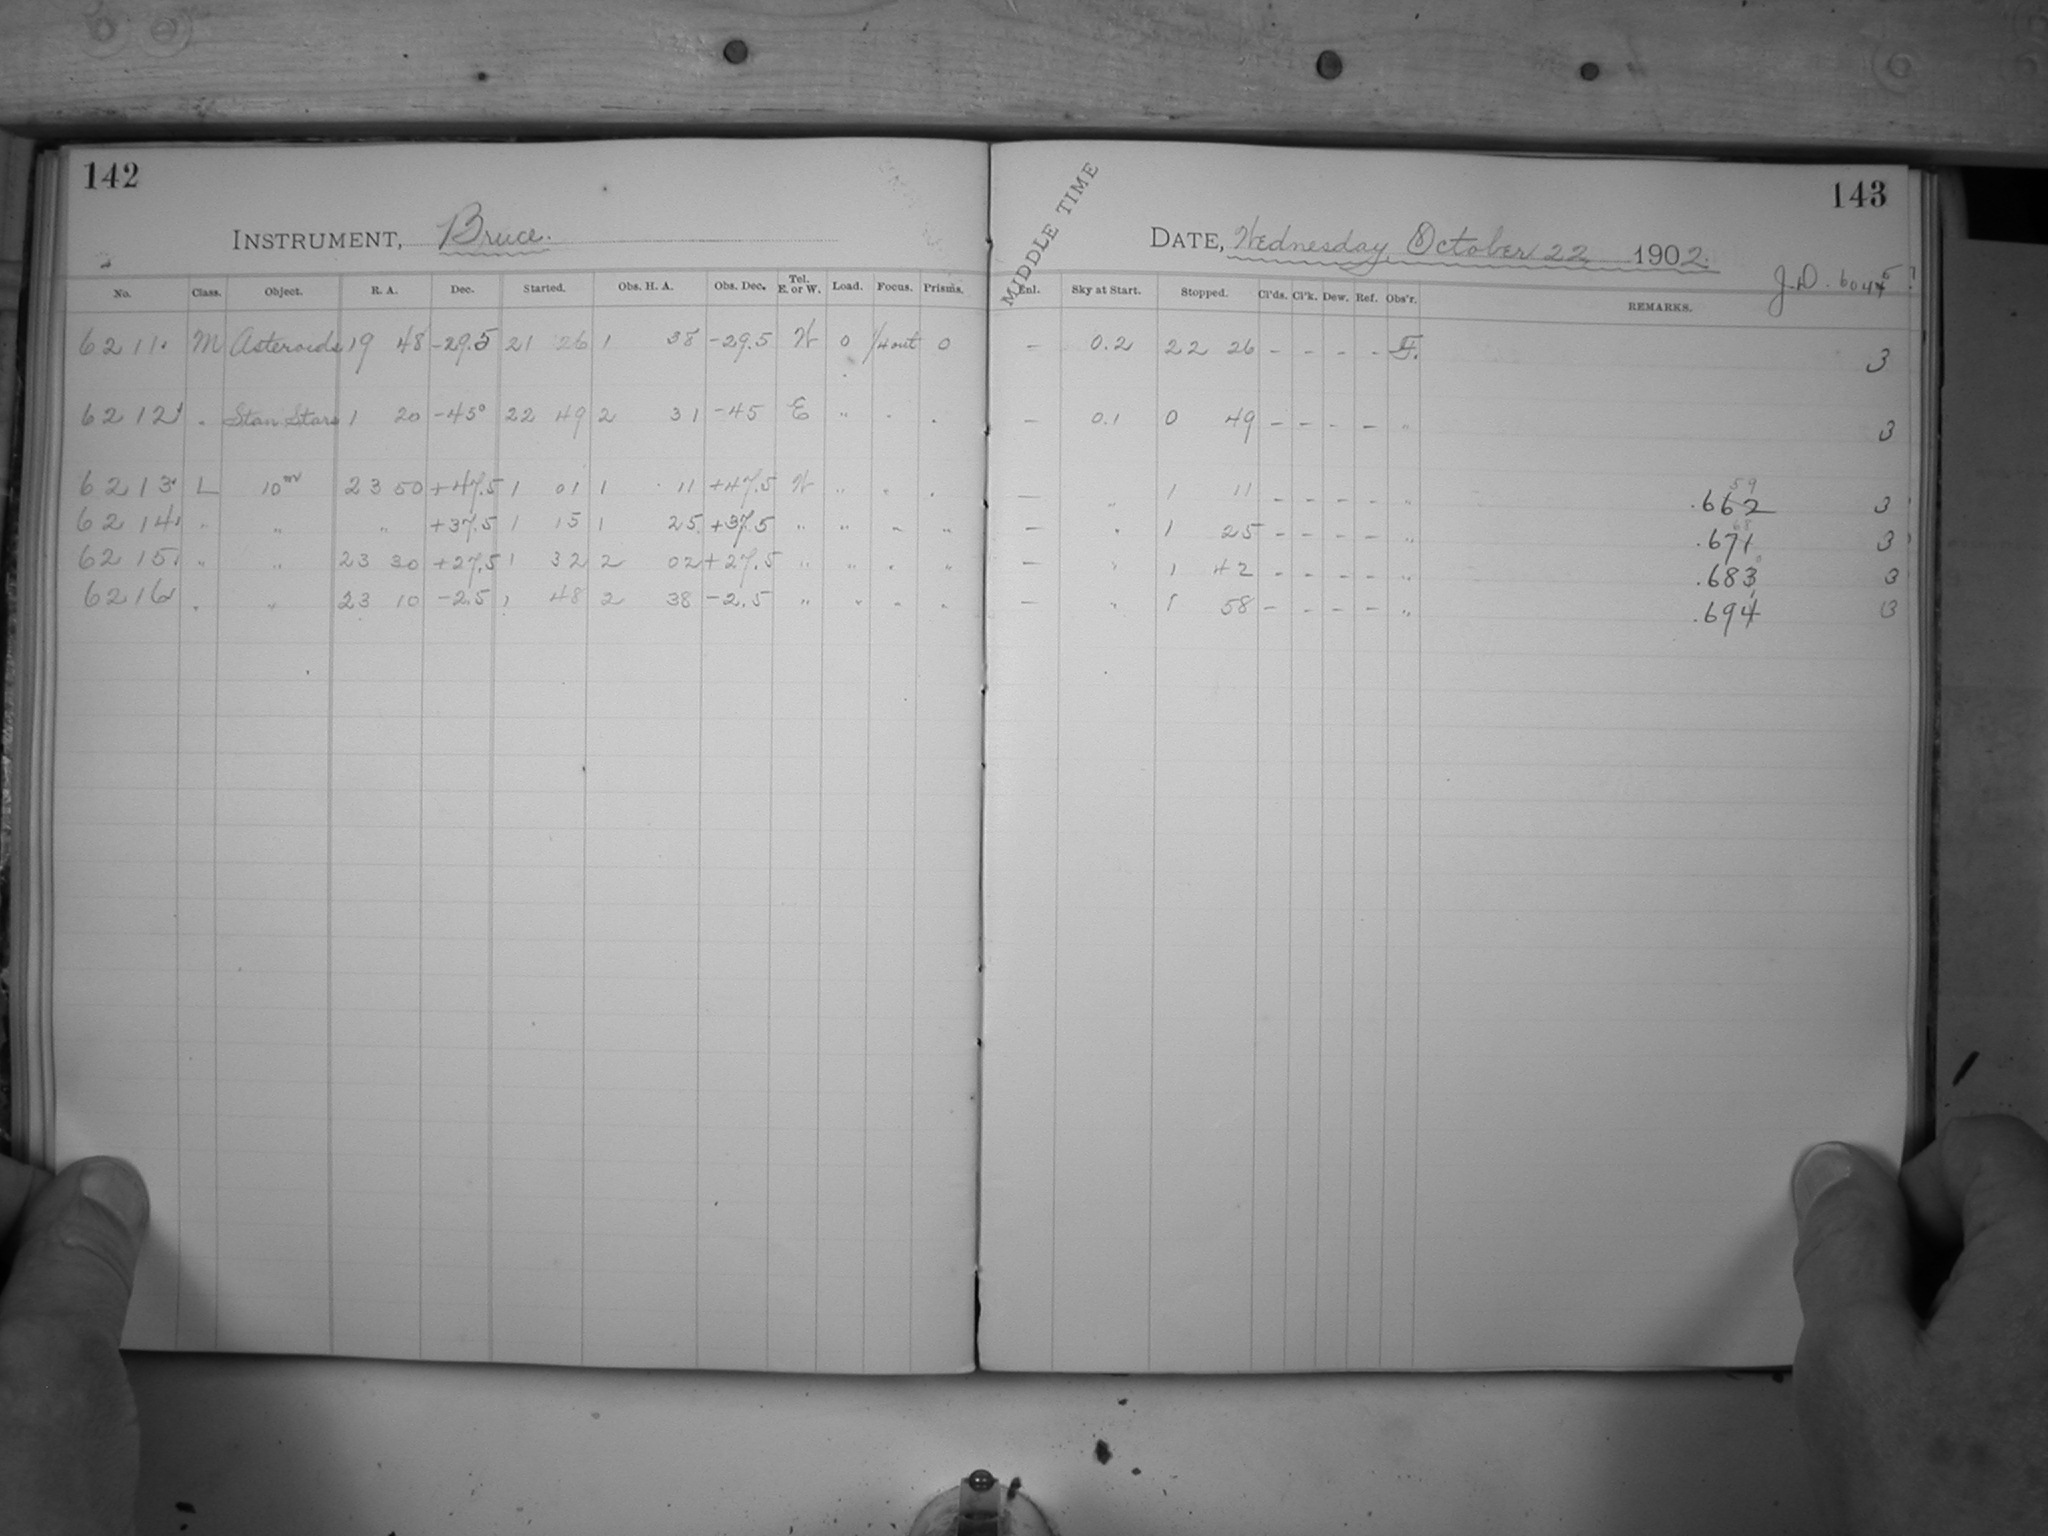 142
INSTRUMENT, Bruce.
No. Class. Object. R. A. Dec. Started. Obs. H. A. Obs. Dec. Tel. E. or W. Load. Focus. Prisms.
6211. M Asteroids 19 48 -29.5 21 26 1 38 -29.5 W 0 1/4 out 0
6212 " Stan Stars 1 20 -45° 22 49 2 31 -45 E " " "
6213 L 10m 23 50 +47.5 1 01 1 11 +47.5 W " " "
6214 " " " +37.5 1 15 1 25 +37.5 " " " "
6215 " " 23 30 +27.5 1 32 2 02 +27.5 " " " "
6216 " " 23 10 -2.5 1 48 2 38 -2.5 " " " "
143
MIDDLE TIME
DATE, Wednesday, October 22 1902.
J.D. 6045
Enl. Sky at Start. Stopped. Cl'ds. Cl'k. Dew. Ref. Obs'r. REMARKS.
– 0.2 22 26 – – – – F. 3
– 0.1 0 49 – – – – " 3
59
– " 1 11 – – – – " .662 3
68
– " 1 25 – – – – " .671 3
– " 1 42 – – – – " .683 3
– " 1 58 – – – – " .694 3